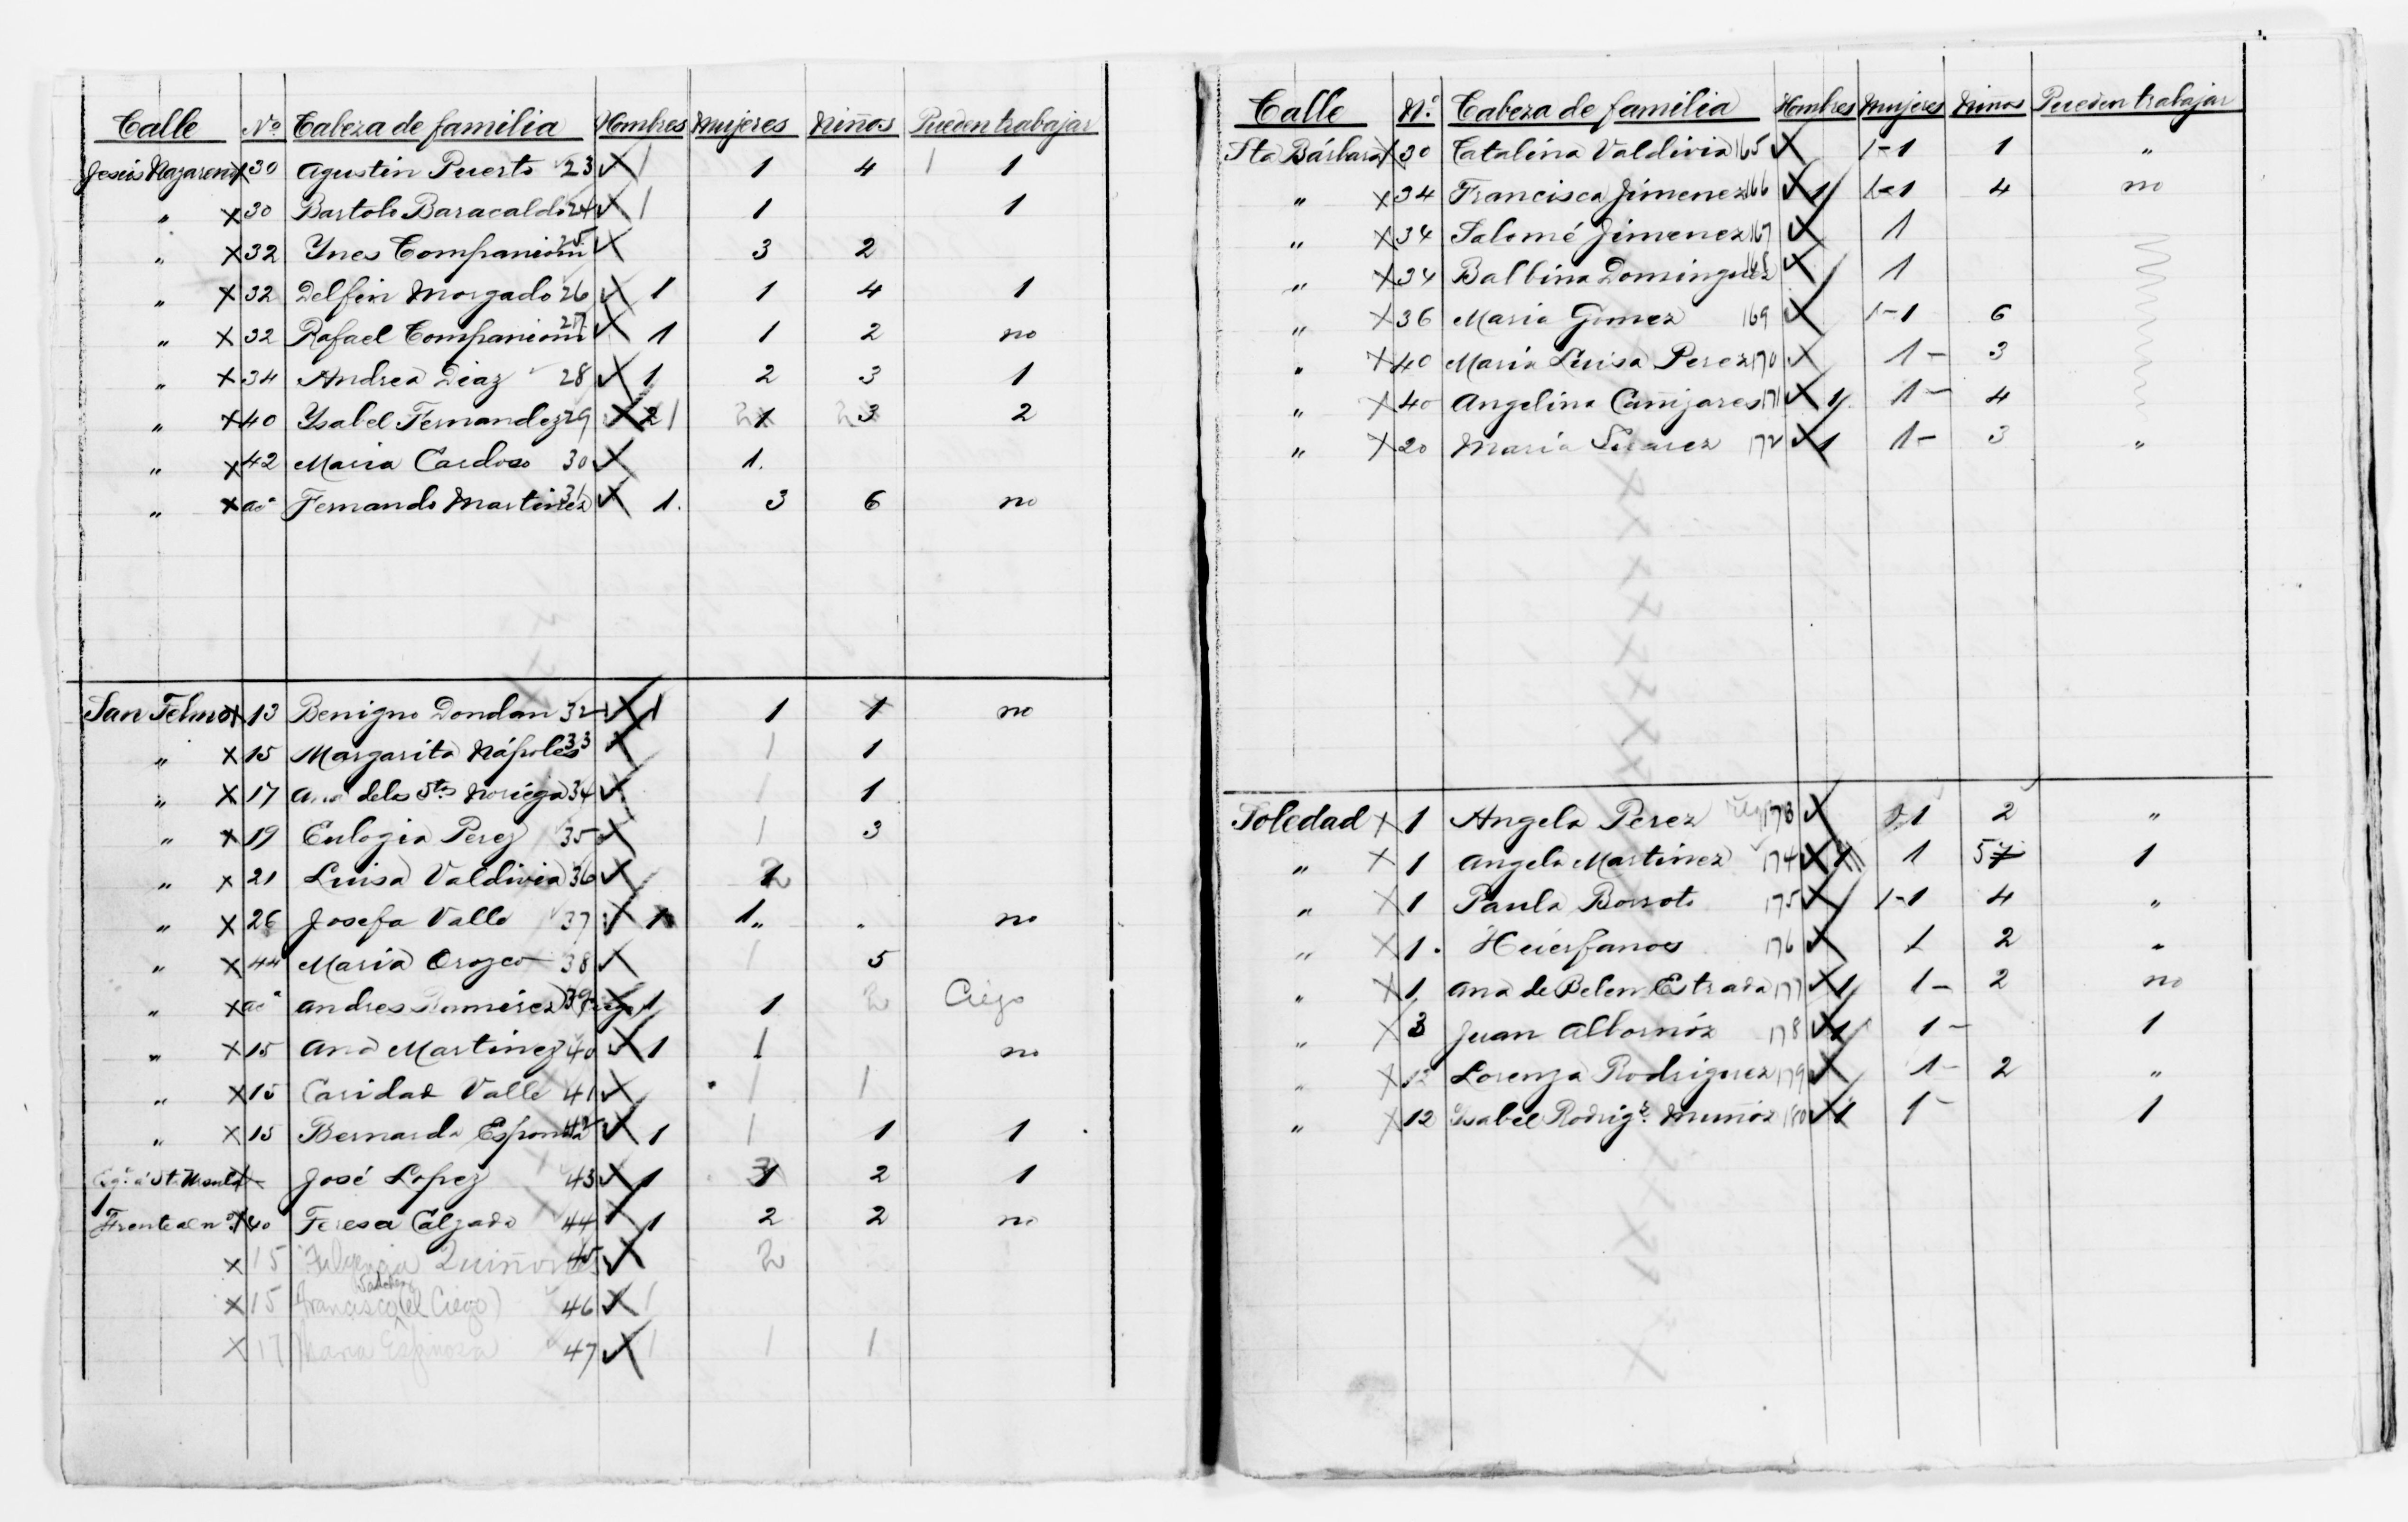 Calle Nº Cabeza de familia Hombres Mujeres Niños Pueden trabajar
Jesús Nazareno X 30 Agustin Puerto 23 X 1 1 4 1 1
" X 30 Bartolo Baracaldo 24 X 1 1 1
" X 32 Ynes Companioni 25 X 3 2
" X 32 Delfin Morgado 26 X 1 1 4 1
" X 32 Rafael Companioni 27 X 1 1 2 no
" X 34 Andrea Diaz 28 X 1 2 3 1
" X 40 Ysabel Fernandez 29 X 2 1 1 3 2
" X 42 Maria Cardoso 30 X 1.
" X ac Fernando Martinez 31 X 1. 3 6 no
San Telmo X 13 Benigno Dondan 32 X 1 1 1 no
" X 15 Margarita Nápoles 33 X 1 1
" X 17 Ana de los Stos Noriega 34 X 1 1
" X 19 Eulogia Perez 35 X 1 3
" X 21 Luisa Valdivia 36 X 2
" X 26 Josefa Valle 37 X 1 1 " . no
" X 44 Maria Orozco 38 X 1 5
" X ac Andres Ramirez 39 Ciego 1 1 2 Ciego
" X 15 Ana Martinez 40 X 1 1 no
" X 15 Caridad Valle 41 X 1 1
" X 15 Bernarda Esponda 42 X 1 1 1 1
Esqª á St. Ursula X – José Lopez 43 X 1 3 2 1
Frente al nº X 40 Teresa Calzada 44 X 1 2 2 no
X 15 Fulgencia Quiñones 45 X 2
X 15 Francisco (el Ciego) 46 X 1
X 17 Maria Espinosa 47 X 1 1 1
Calle Nº Cabeza de familia Hombres Mujeres Niños Pueden trabajar
Sta Bárbara X 30 Catalina Valdivia 165 X 1-1 1 "
" X 34 Francisca Jimenez 166 X 1 1-1 4 no
" X 34 Salomé Jimenez 167 X 1
" X 34 Balbina Dominguez 168 X 1
" X 36 Maria Gomez 169 X 1-1 6
" X 40 Maria Luisa Perez 170 X 1- 3
" X 40 Angelina Cañizares 171 X 1 1- 4
" X 20 Maria Suarez 172 X 1 1- 3 "
Soledad X 1 Angela Perez 173 X 1 2 "
" X 1 Angela Martinez 174 X 1 5 7 1
" X 1 Paula Borroto 175 X 1-1 4 "
" X 1. Huérfanos 176 X 1 2 "
" X 1 Ana de Belen Estrada 177 X 1 1- 2 no
" X 3 Juan Albornóz 178 X 1 1- 1
" X 12 Lorenza Rodriguez 179 X 1- 2 "
" X 12 Ysabel Rodrigz Muñóz 180 X 1 1- 1